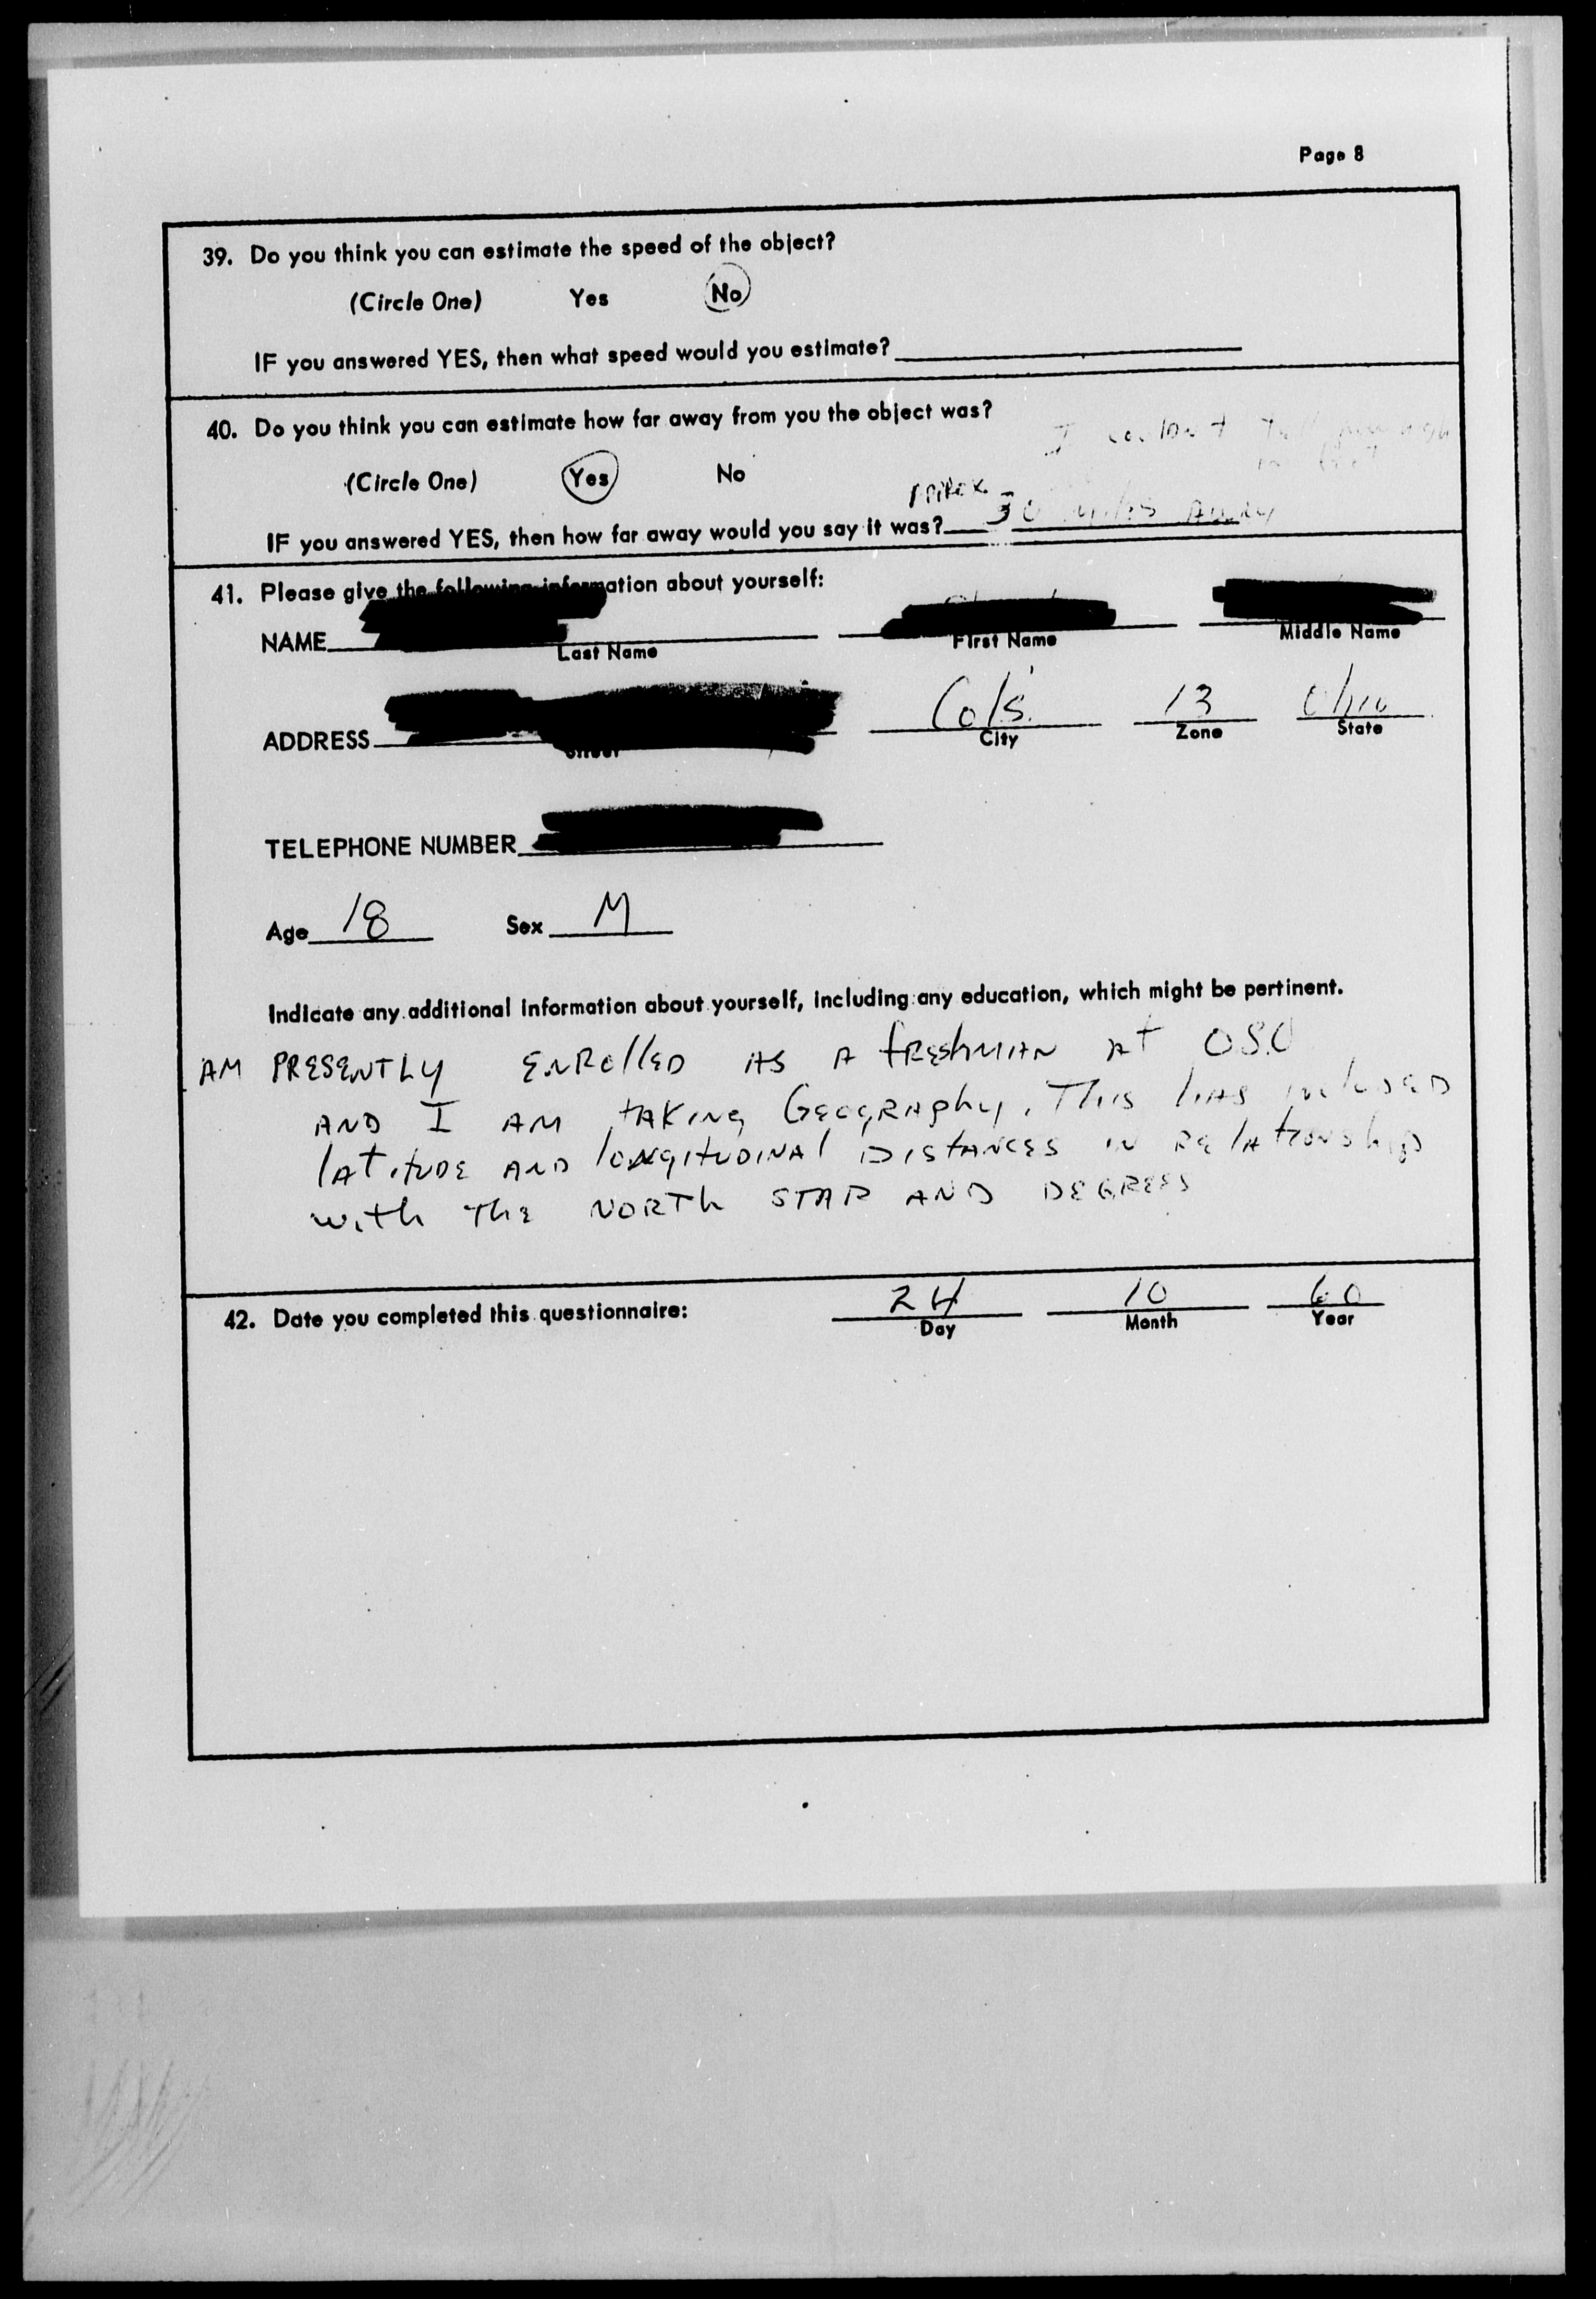 Page 8
39. Do you think you can estimate the speed of the object?
(Circle One) Yes No
IF you answered YES, then what speed would you estimate?
40. Do you think you can estimate how far away from you the object was?
I couldn't
(Circle One) Yes No
IF you answered YES, then how far away would you say it was? 30 miles AWAY
41. Please give the following information about yourself:
NAME
Last Name First Name Middle Name
ADDRESS Col's. 13 Ohio
Street City Zone State
TELEPHONE NUMBER
Age 18 Sex M
Indicate any additional information about yourself, including any education, which might be pertinent.
AM PRESENTLY ENROLLED AS A FRESHMAN AT OSU
AND I AM TAKING GEOGRAPHY. THIS HAS INCLUDED
LATITUDE AND LONGITUDINAL DISTANCES IN RELATIONSHIP
WITH THE NORTH STAR AND DEGREES
42. Date you completed this questionnaire: 24 10 60
Day Month Year